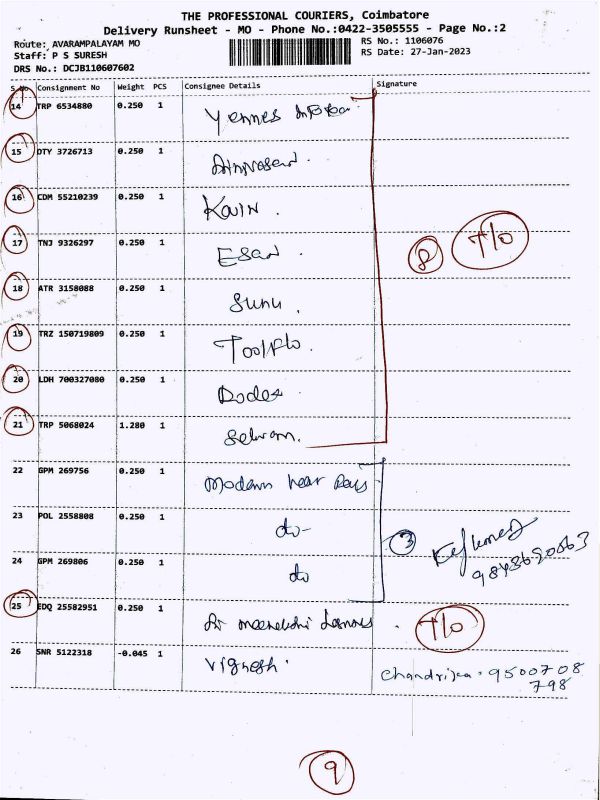 THE PROFESSIONAL COURIERS, Coimbatore
Delivery Runsheet - MO - Phone No.:0422-3505555 - Page No.:2
Route: AVARAMPALAYAM MO
RS No.: 1106076
Staff: P S SURESH
RS Date: 27-Jan-2023
DRS No.: DCJB110607602
S.No Consignment No Weight PCS Consignee Details Signature
14 TRP 6534880 0.250 1 Yennes
15 DTY 3726713 0.250 1
16 CDM 55210239 0.250 1 Kavin.
17 TNJ 9326297 0.250 1 Esan.
8 T/O
18 ATR 3158088 0.250 1 Sunu.
19 TRZ 150719809 0.250 1 Toolflo.
20 LDH 700327080 0.250 1
21 TRP 5068024 1.280 1 Selvam.
22 GPM 269756 0.250 1 Modern
23 POL 2558808 0.250 1 do-
3
24 GPM 269806 0.250 1 do
25 EDQ 25582951 0.250 1 T/O
26 SNR 5122318 -0.045 1 Vignesh.
Chandrika. 9500708
798
9